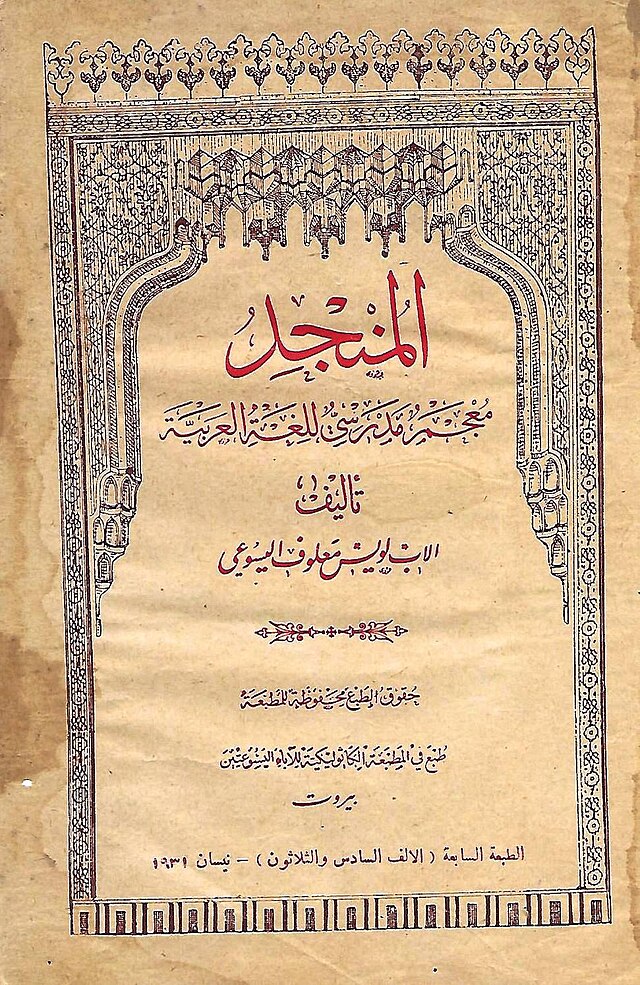 المُنْجِدُ
مُعْجَم مَدْرَسِيّ لِلُّغَةِ الْعَرَبِيَّة
تأليف
الاب لويس معلوف اليسوعي
حقوق الطبع محفوظة للمطبعة
طُبعَ في المطبَعَة الكاثوليكيّة للآباء اليَسُوعيّين
بيروت
الطبعة السابعة ( الالف السادس والثلاثون ) – نيسان ١٩٣١